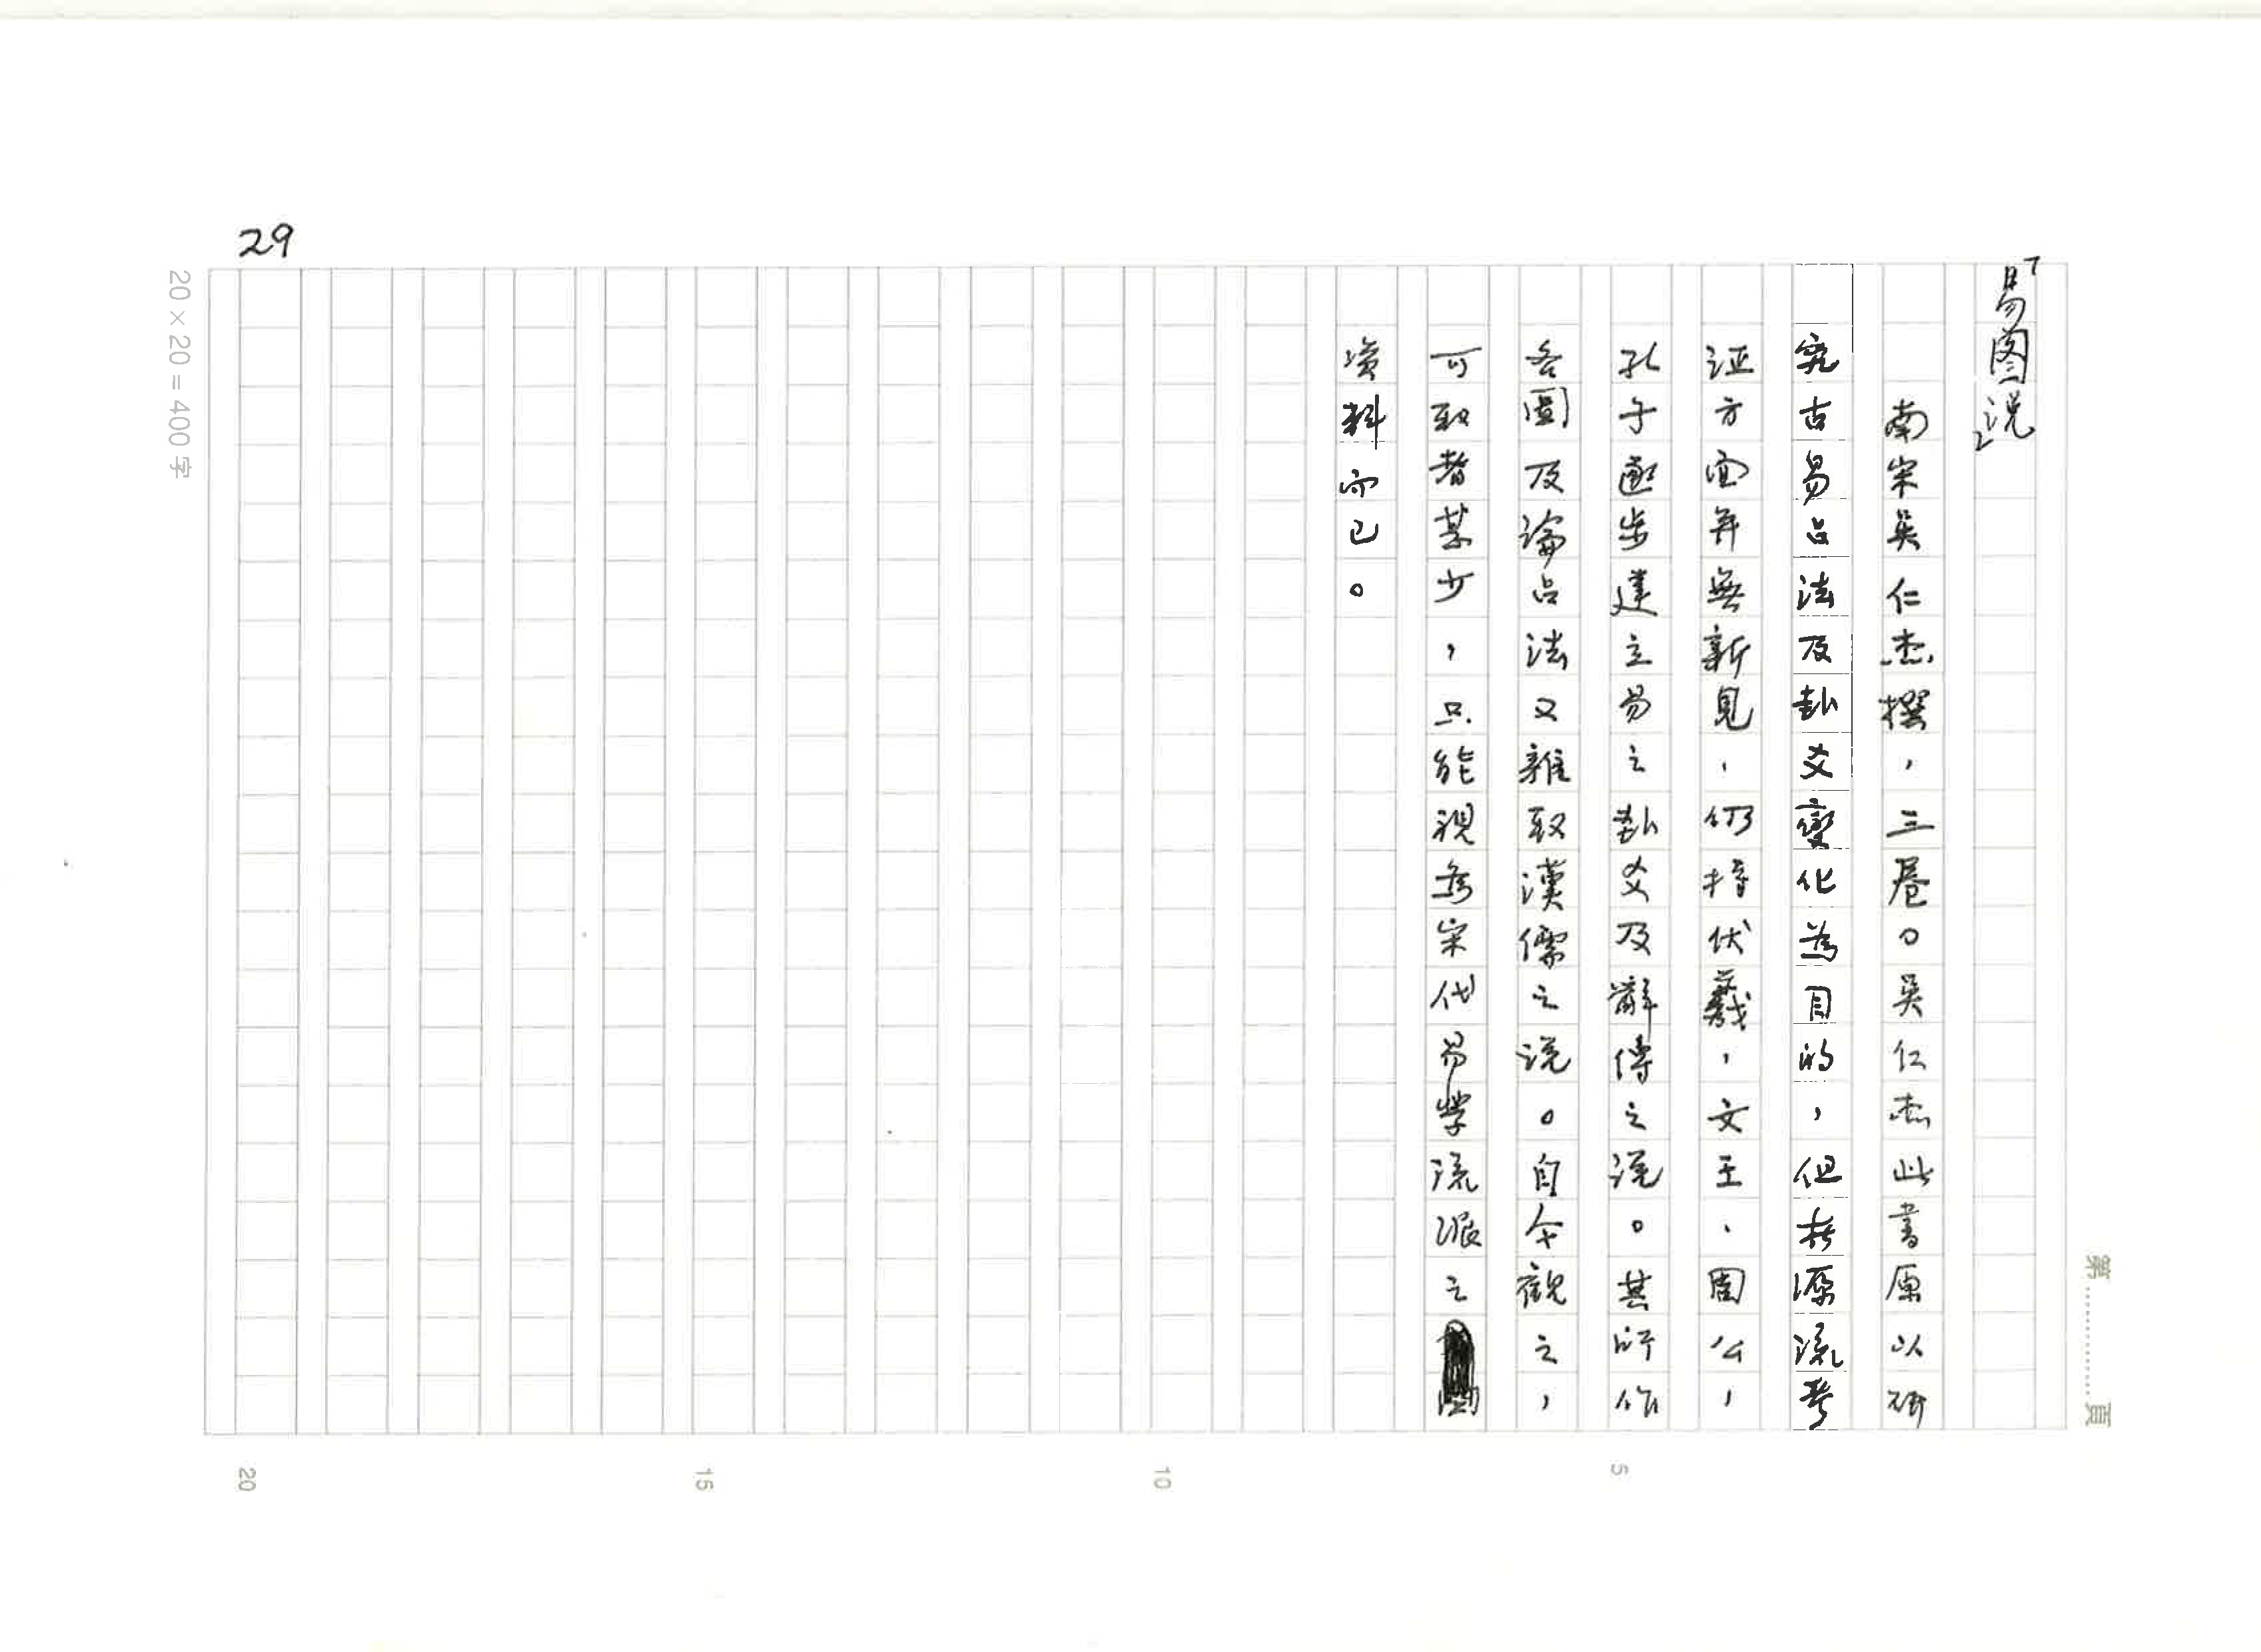 「易图说」
南宋吳仁杰撰，三卷。吳仁杰此書原以研
究古易占法及卦爻變化為目的，但於源流考
证方面并無新見，仍持伏羲，文王、周公，
孔子逐步建立易之卦爻及辭傳之说。其所作
各圖及論占法又雜取漢儒之说。自今觀之，
可取者甚少，只能視為宋代易学流派之
资料而已。
29
20×20=400字
第 頁
5
10
15
20